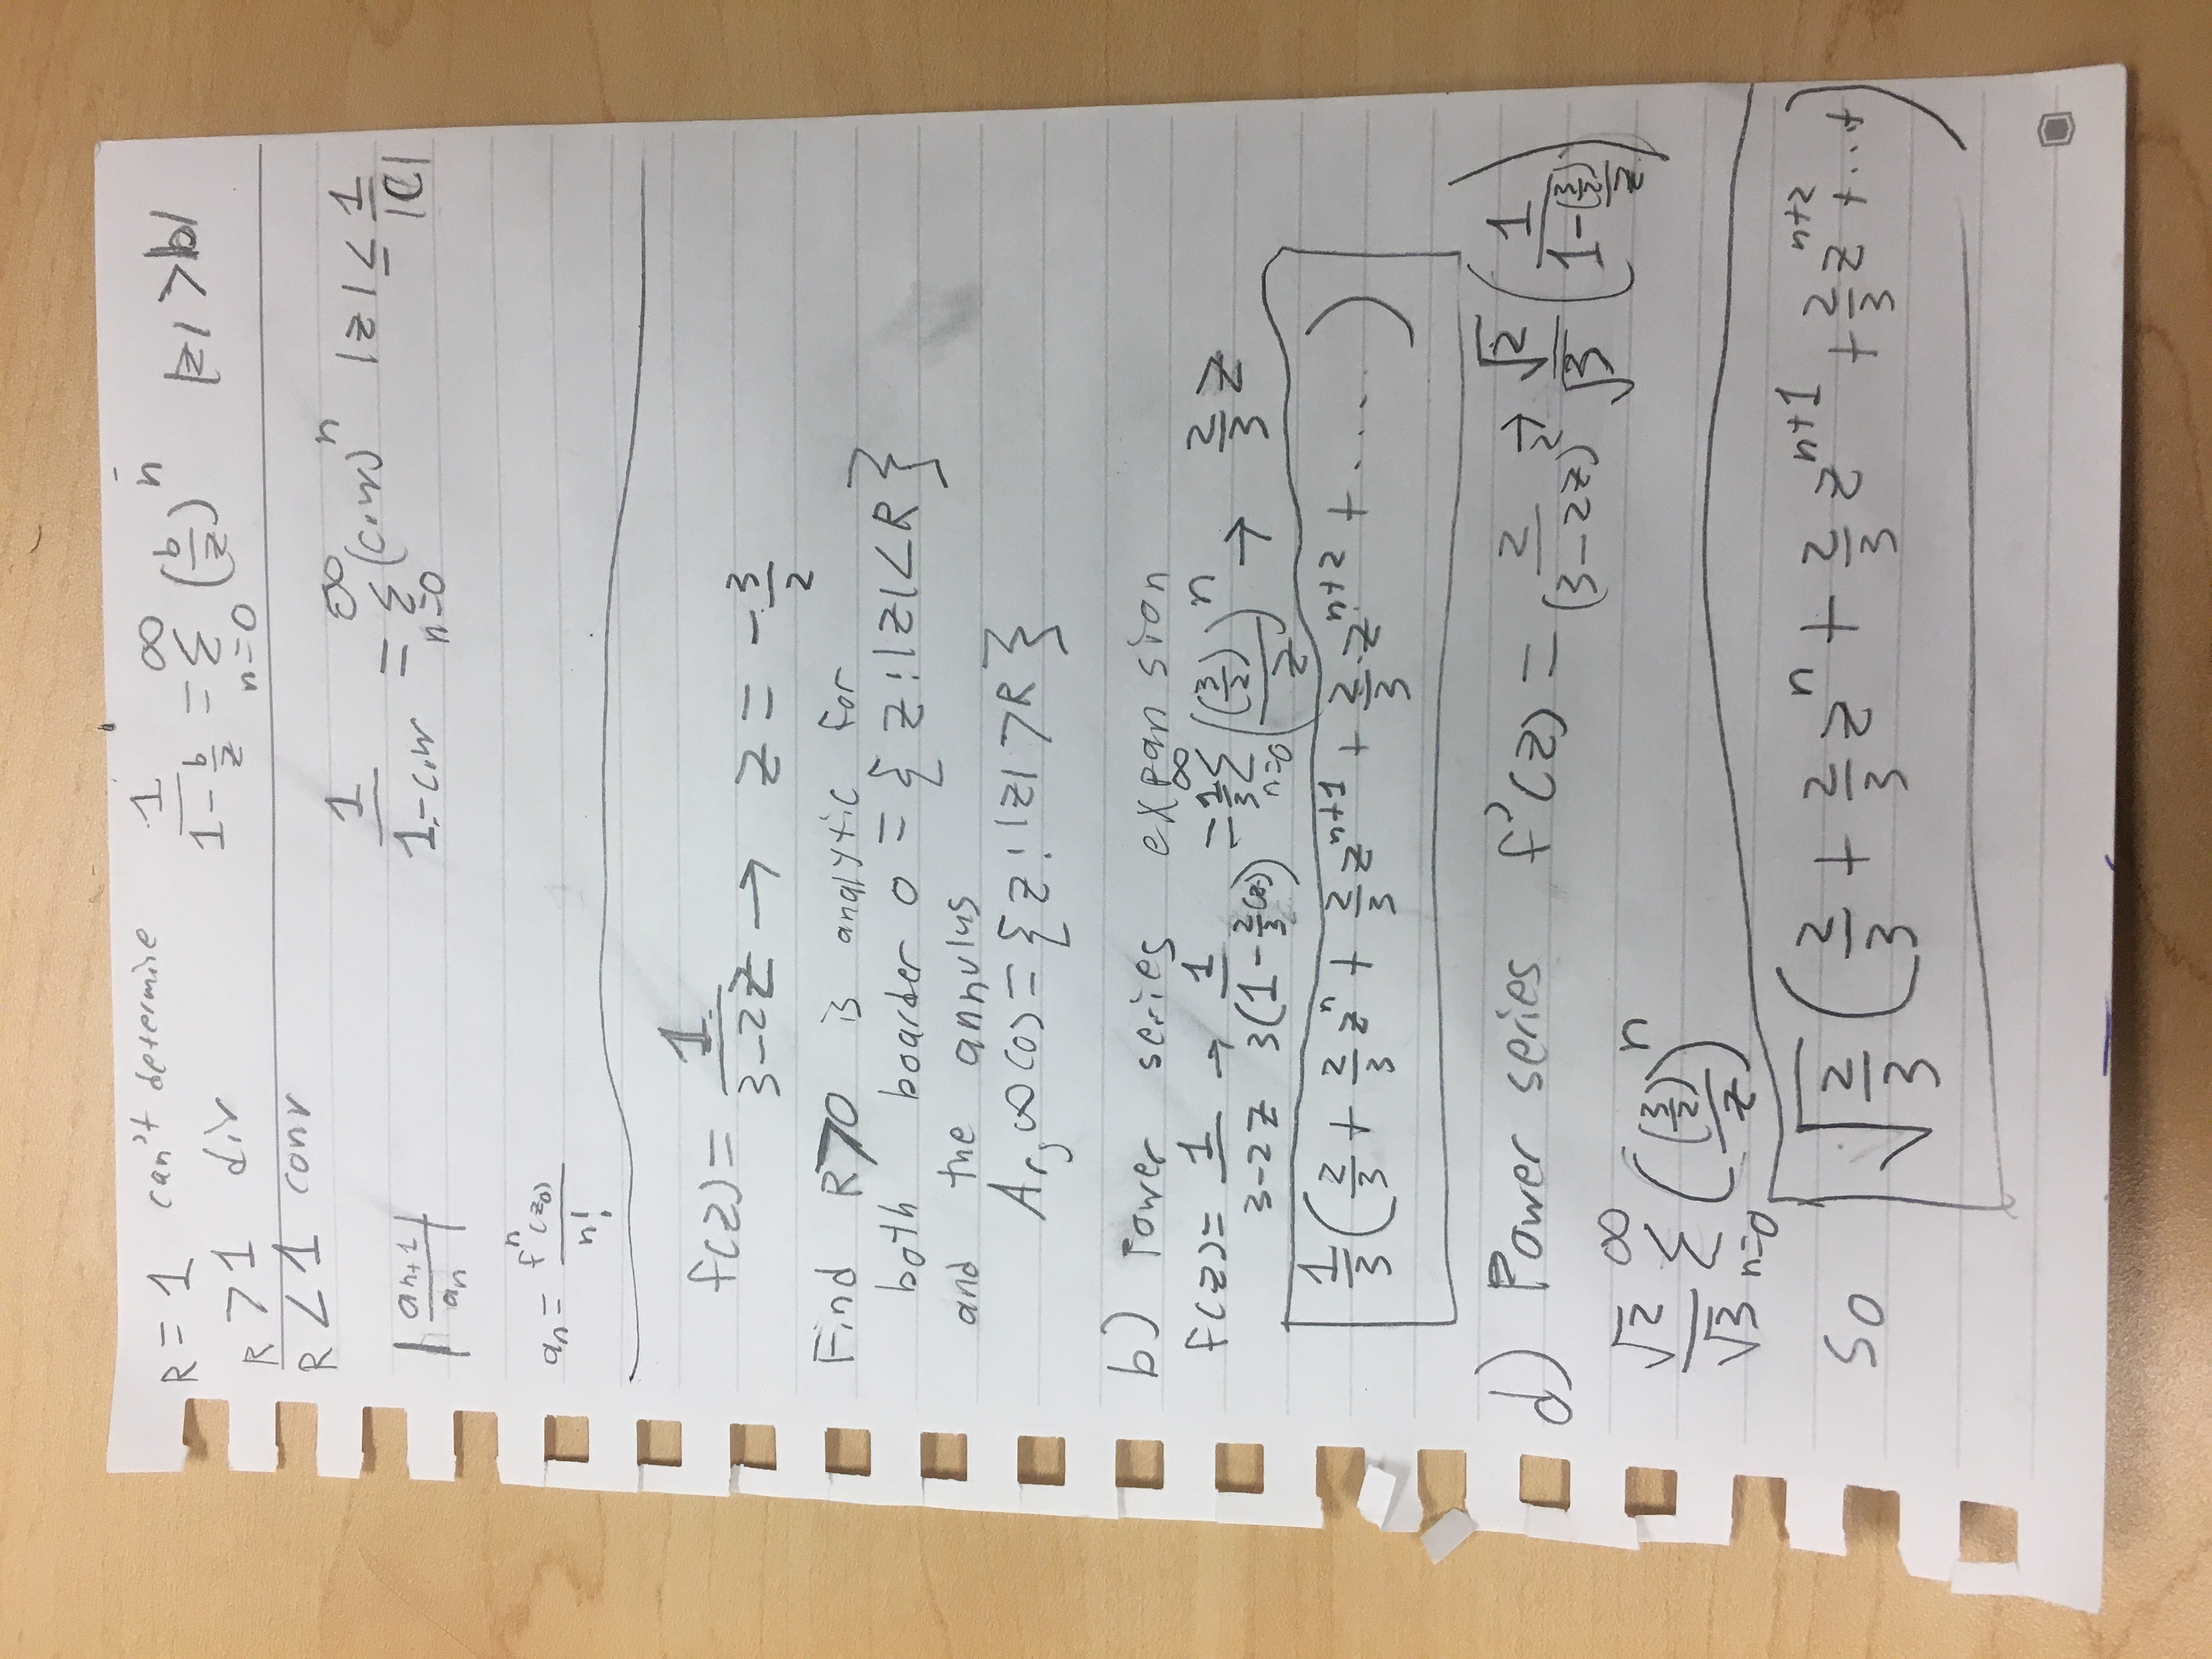 R = 1 can't determine
R > 1 div
R < 1 conv
1/(1 - b/z) = ∞ Σ n=0 (b/z)^n |z| > |b|
1/(1 - c·w) = ∞ Σ n=0 (c·w)^n |z| ≤ 1/|C|
|an+1/an|
an = f^n(z0)/n!
f(z) = 1/(3-2z) → z = -3/2
Find R>0 is analytic for
both boarder 0 = { z : |z| < R }
and the annulus
Ar,∞(0) = { z : |z| > R }
b) Power series expansion
f(z) = 1/(3-2z) → 1/(3(1 - 2/3(z))) = 1/3 ∞ Σ n=0 ((3/2)/z)^n → 2/3 z
1/3 (2/3 + 2/3 z^n + 2/3 z^n+1 + 2/3 · z^n+2 + ....)
d) Power series f'(z) = 2/(3-2z)^2 → √2/√3 (1/(1 - (3/2)/z))
√2/√3 ∞ Σ n=0 ((3/2)/z)^n
So √(2/3) (2/3 + 2/3 z^n + 2/3 z^n+1 + 2/3 z^n+2 + ...+)